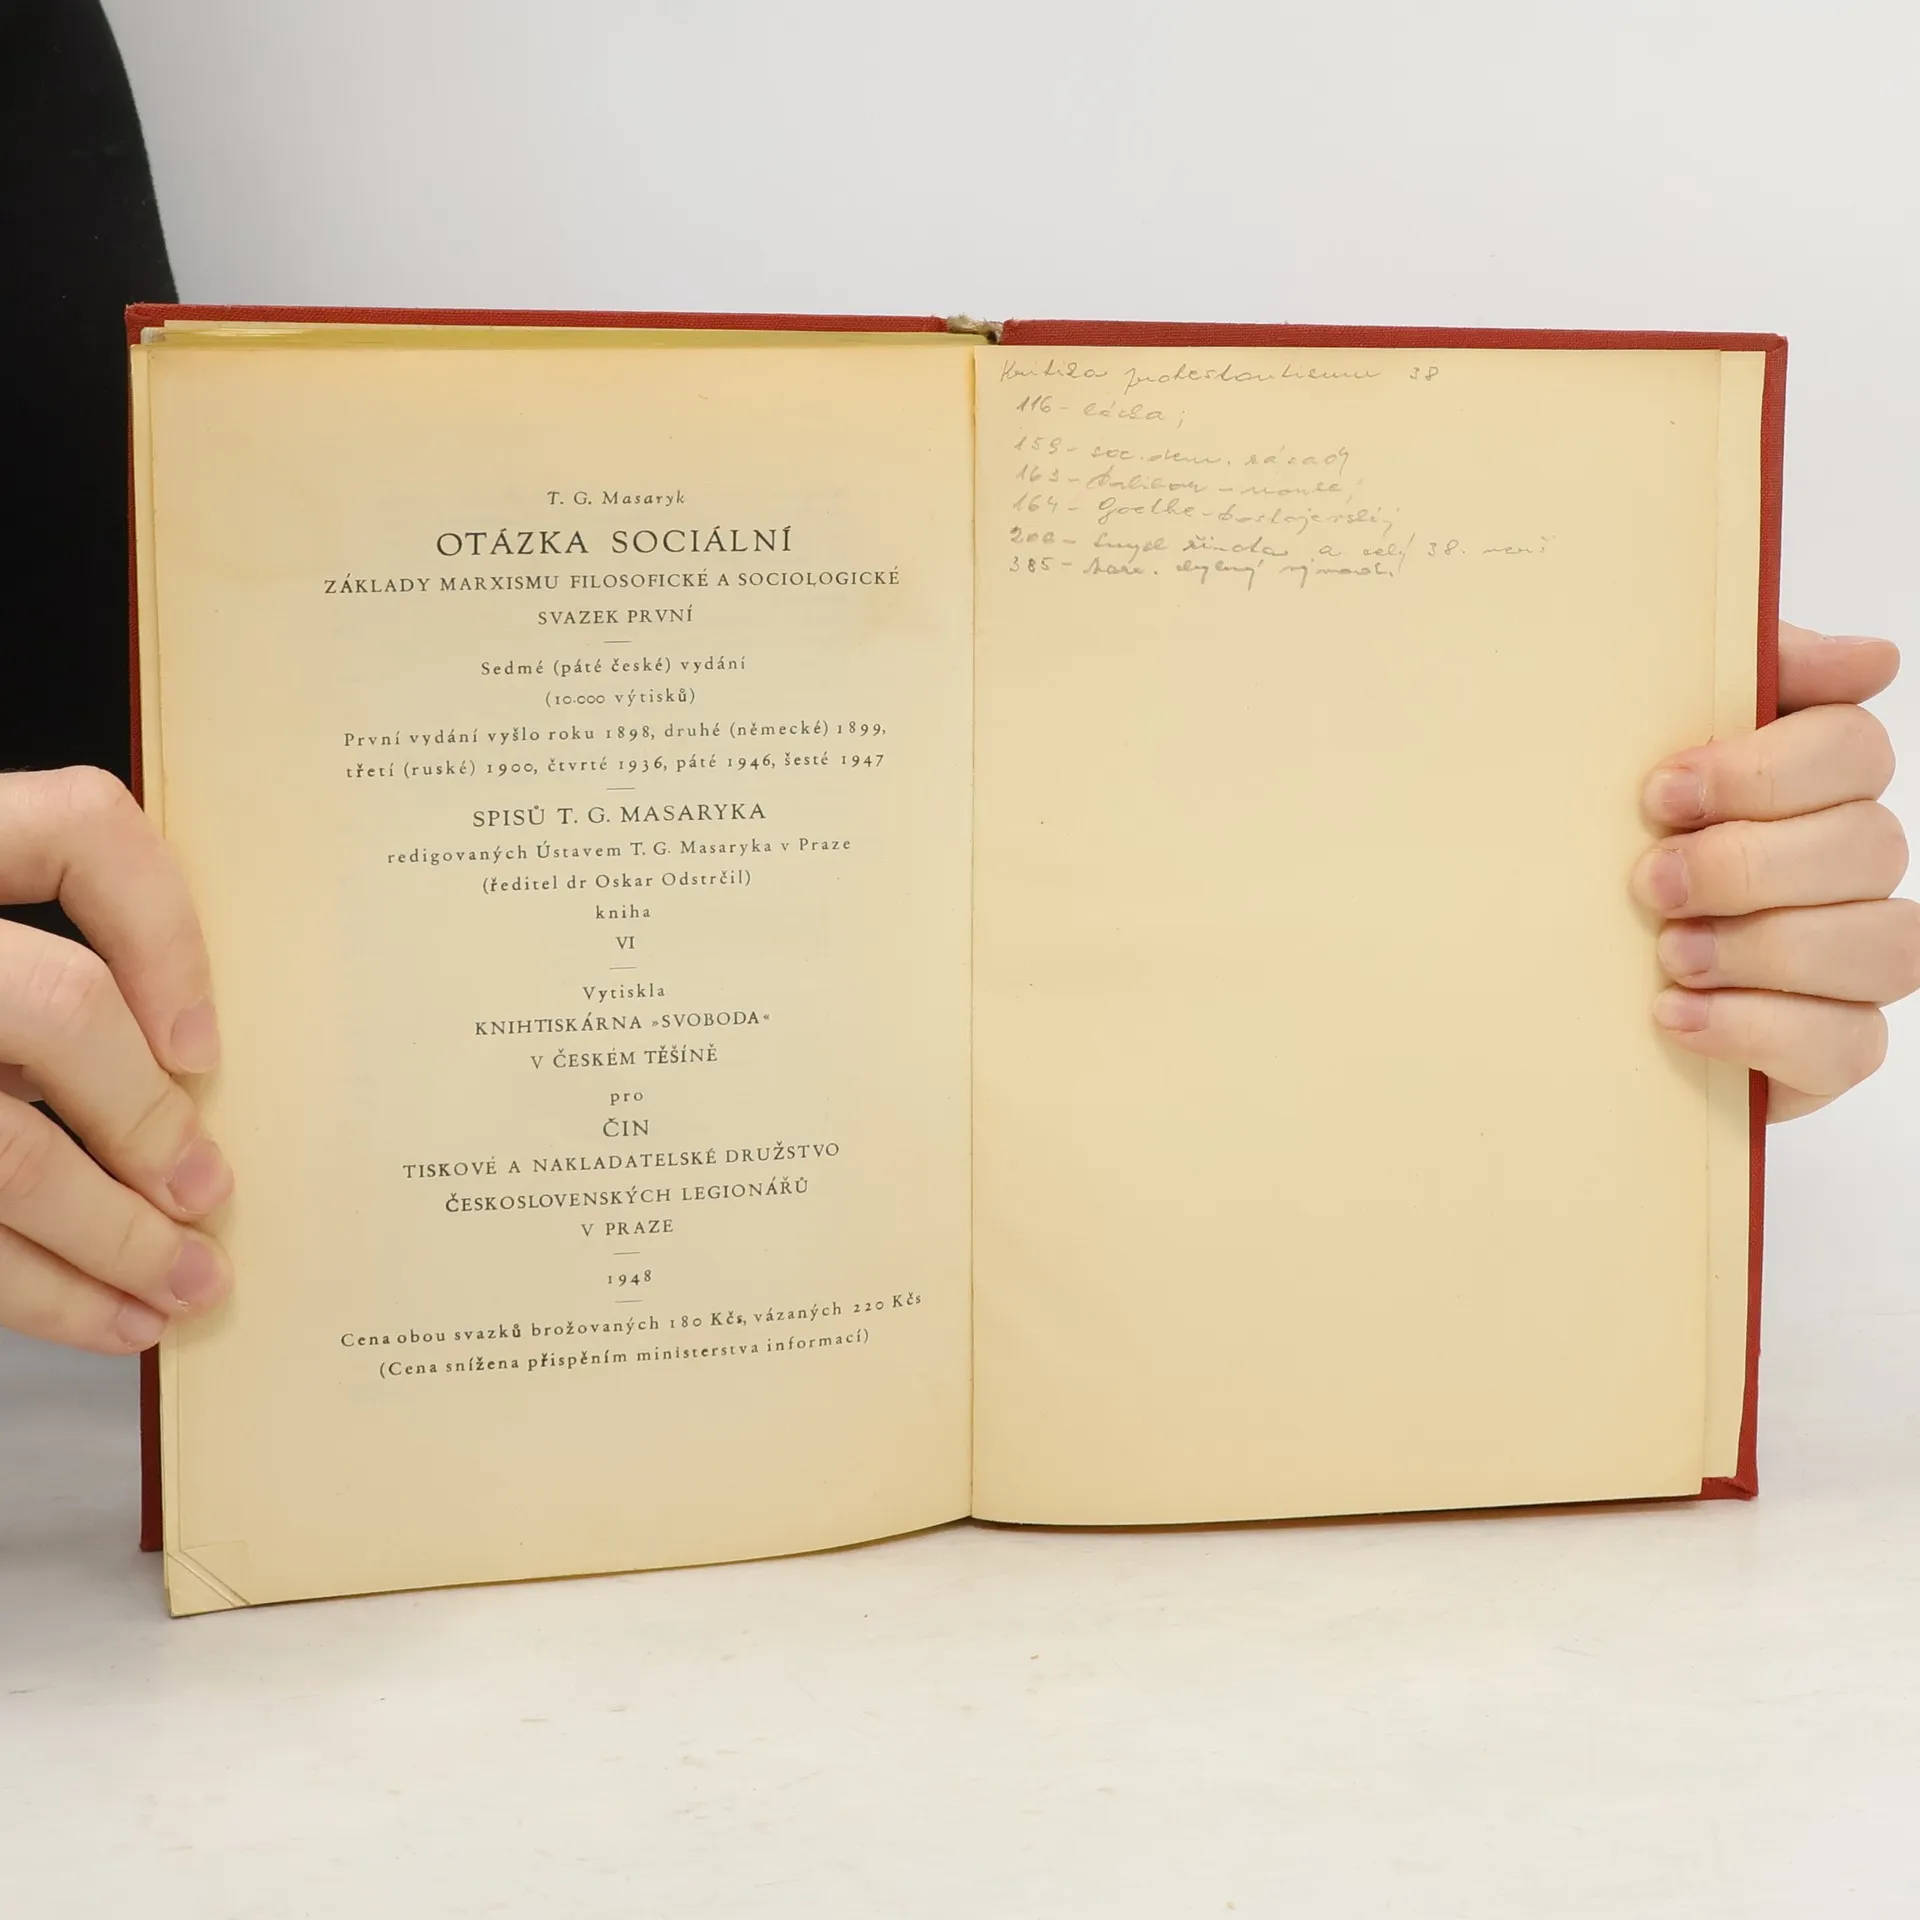 T. G. Masaryk
OTÁZKA SOCIÁLNÍ
ZÁKLADY MARXISMU FILOSOFICKÉ A SOCIOLOGICKÉ
SVAZEK PRVNÍ
Sedmé (páté české) vydání
(10.000 výtisků)
První vydání vyšlo roku 1898, druhé (německé) 1899,
třetí (ruské) 1900, čtvrté 1936, páté 1946, šesté 1947
SPISŮ T. G. MASARYKA
redigovaných Ústavem T. G. Masaryka v Praze
(ředitel dr Oskar Odstrčil)
kniha
VI
Vytiskla
KNIHTISKÁRNA »SVOBODA«
V ČESKÉM TĚŠÍNĚ
pro
ČIN
TISKOVÉ A NAKLADATELSKÉ DRUŽSTVO
ČESKOSLOVENSKÝCH LEGIONÁŘŮ
V PRAZE
1948
Cena obou svazků brožovaných 180 Kčs, vázaných 220 Kčs
(Cena snížena přispěním ministerstva informací)
Kritika protestantismu 38
116 -
159 - soc. dem. zásady
163 -
164 - Goethe - Dostojevský
smysl života a celý 38.
385 -